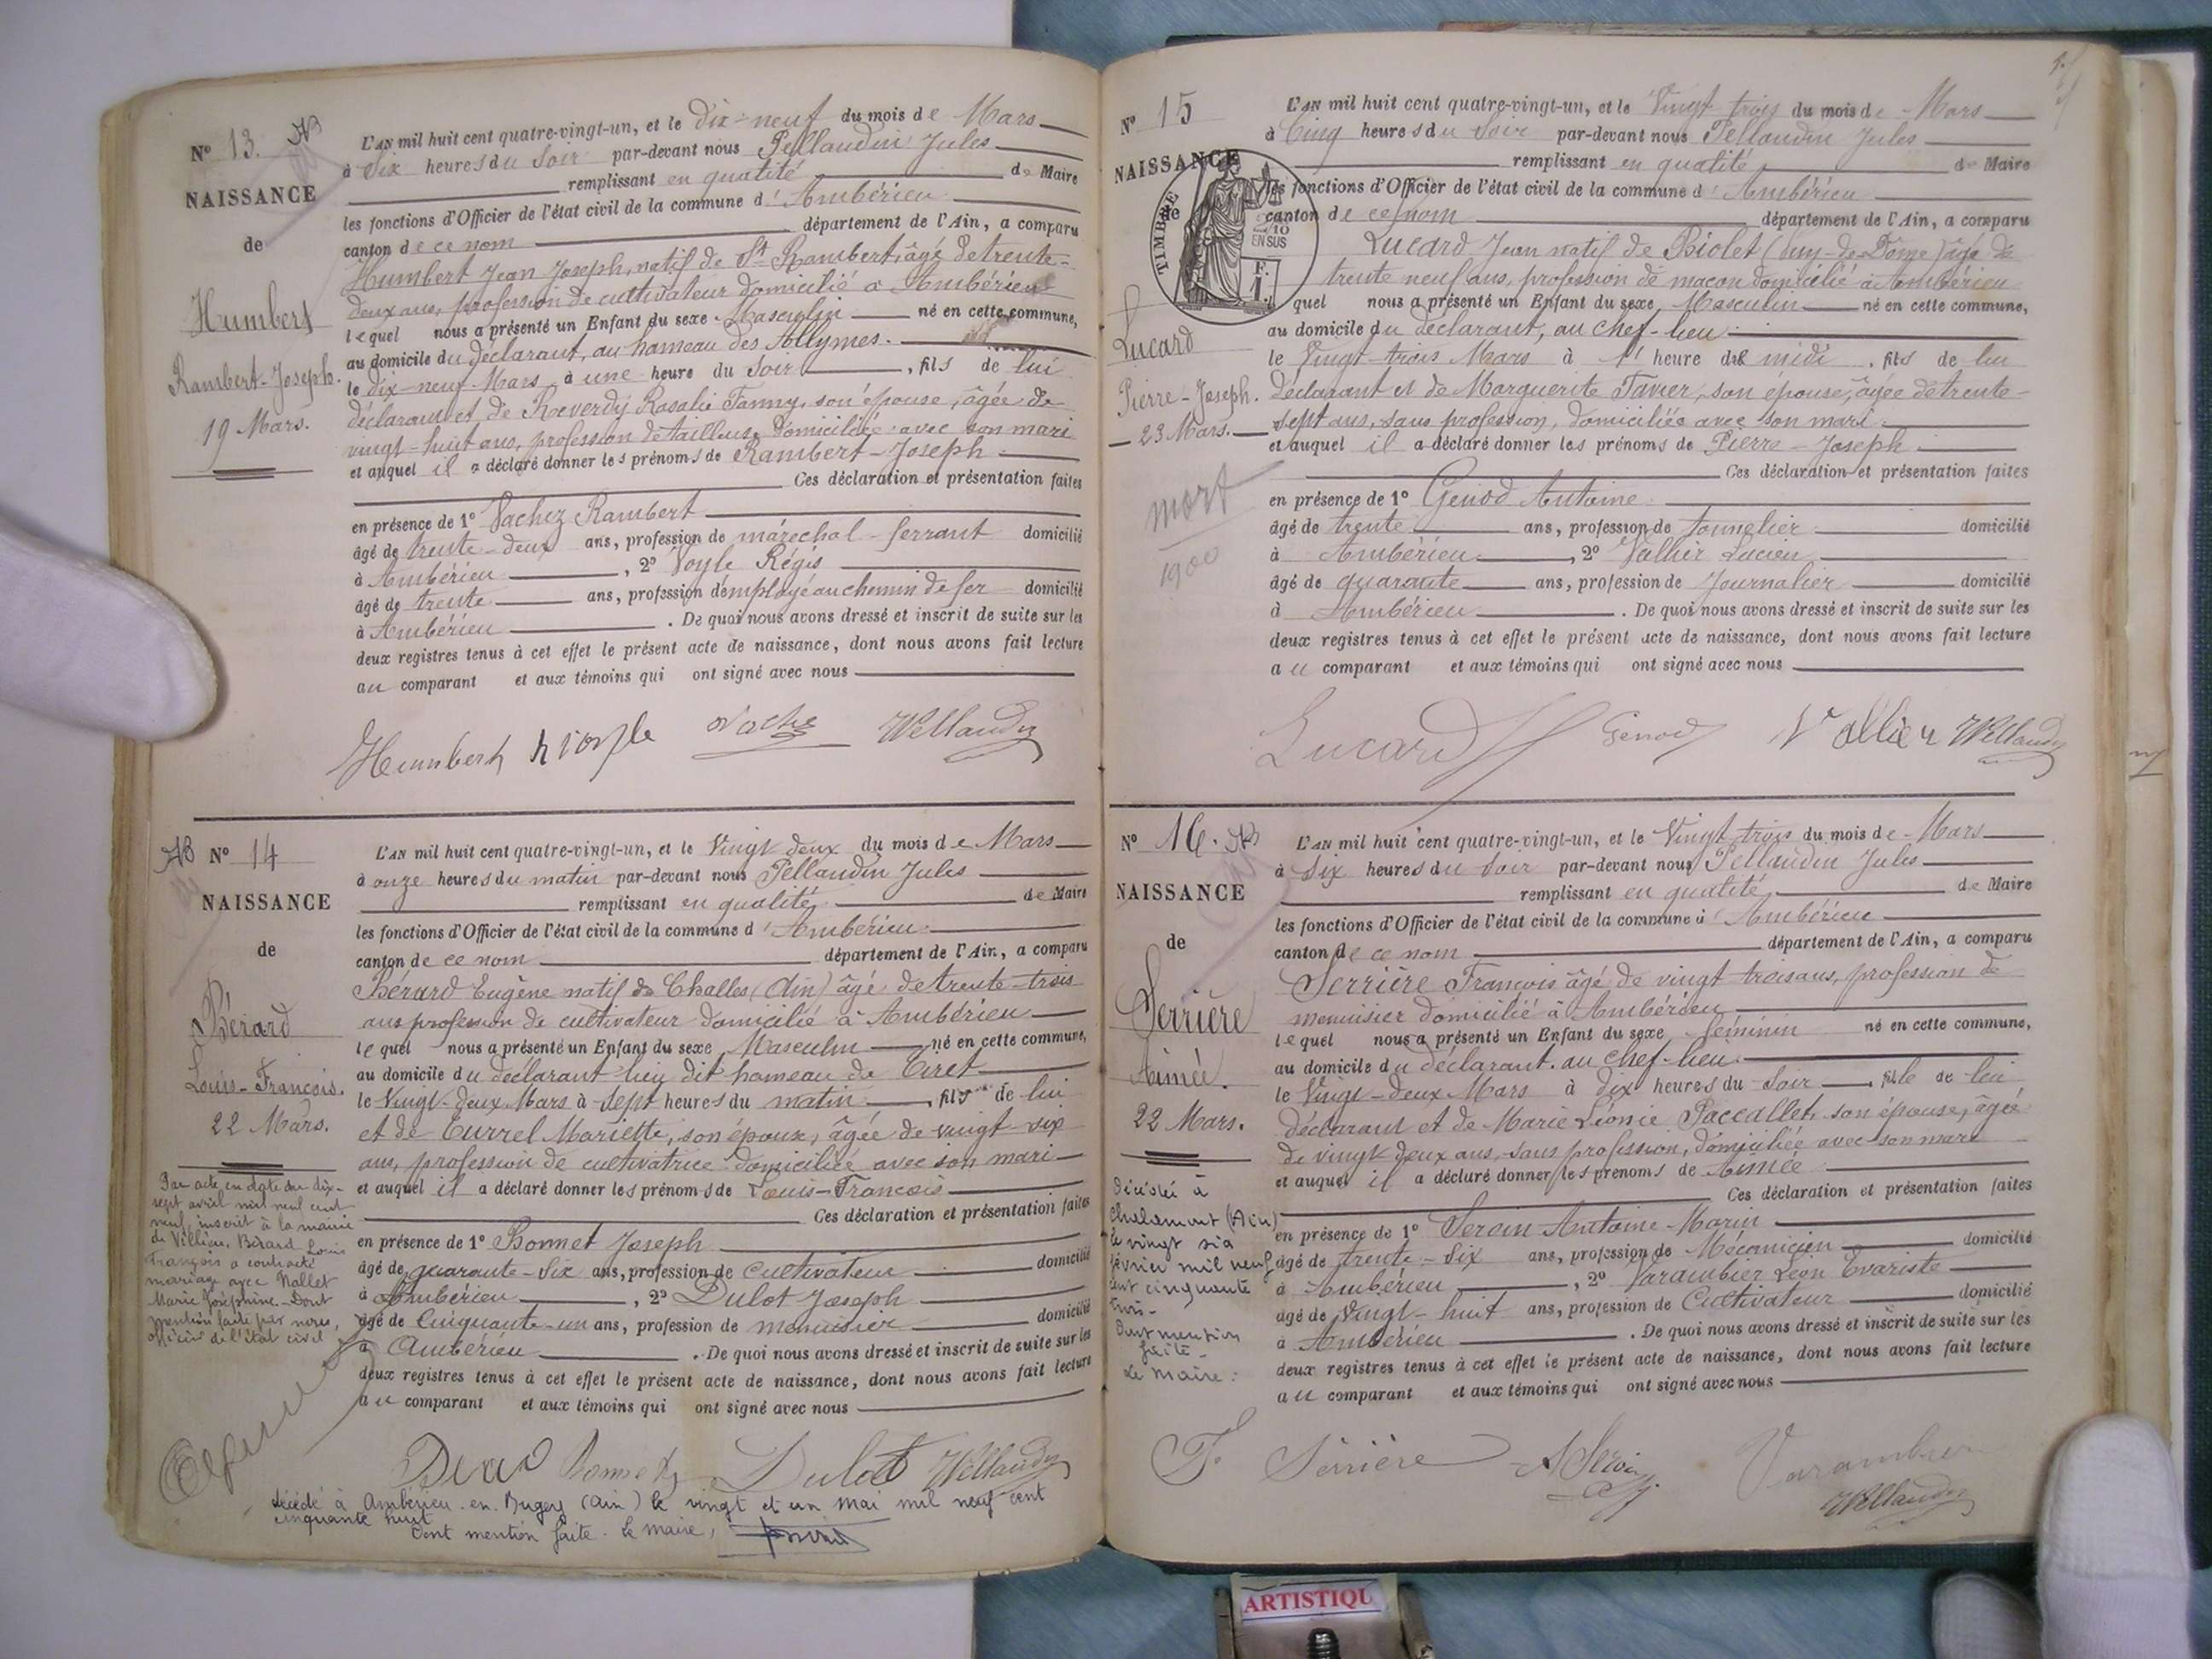 N° 13.
NAISSANCE
de
Humbert
Rambert-Joseph.
19 Mars.
L'AN mil huit cent quatre-vingt-un, et le dix-neuf du mois de Mars
à Six heures du Soir par-devant nous Pellaudin Jules
remplissant en qualité de Maire
les fonctions d'Officier de l'état civil de la commune d'Ambérieu
canton de ce nom département de l'Ain, a comparu
Humbert Jean Joseph, natif de St Rambert, âgé de trente-
deux ans, profession de cultivateur domicilié à Ambérieu
lequel nous a présenté un Enfant du sexe Masculin né en cette commune,
au domicile du déclarant, au hameau des Allymes.
le dix-neuf Mars à une heure du Soir, fils de lui
déclarant et de Roeverdy Rosalie Fanny, son épouse, âgée de
vingt-huit ans, profession de tailleuse domiciliée avec son mari
et auquel il a déclaré donner les prénoms de Rambert-Joseph.
Ces déclaration et présentation faites
en présence de 1° Vachez Rambert
âgé de trente-deux ans, profession de maréchal-ferrant domicilié
à Ambérieu, 2° Voyle Régis
âgé de trente ans, profession d'employé au chemin de fer domicilié
à Ambérieu. De quoi nous avons dressé et inscrit de suite sur les
deux registres tenus à cet effet le présent acte de naissance, dont nous avons fait lecture
au comparant et aux témoins qui ont signé avec nous
Humbert Vache Pellaudin
N° 14
NAISSANCE
de
Bérard
Louis-François.
22 Mars.
Par acte en date du dix-
sept avril mil neuf cent
neuf, inscrit à la mairie
de Villieu, Bérard Louis
François a contracté
mariage avec Nallet
Marie Joséphine. Dont
mention faite par nous,
officier de l'état civil
L'AN mil huit cent quatre-vingt-un, et le Vingt deux du mois de Mars
à onze heures du matin par-devant nous Pellaudin Jules
remplissant en qualité de Maire
les fonctions d'Officier de l'état civil de la commune d'Ambérieu
canton de ce nom département de l'Ain, a comparu
Bérard Eugène natif de Challes (Ain) âgé de trente-trois
ans profession de cultivateur domicilié à Ambérieu
lequel nous a présenté un Enfant du sexe Masculin né en cette commune,
au domicile du déclarant lieu dit hameau de Tiret
le Vingt-deux Mars à sept heures du matin, fils de lui
et de Currel Mariette, son épouse, âgée de vingt-six
ans, profession de cultivatrice domiciliée avec son mari
et auquel il a déclaré donner les prénoms de Louis-François
Ces déclaration et présentation faites
en présence de 1° Bonnet Joseph
âgé de quarante-six ans, profession de Cultivateur domicilié
à Ambérieu, 2° Dulot Joseph
âgé de Cinquante-un ans, profession de menuisier domicilié
à Ambérieu. De quoi nous avons dressé et inscrit de suite sur les
deux registres tenus à cet effet le présent acte de naissance, dont nous avons fait lecture
au comparant et aux témoins qui ont signé avec nous
Bonnet Dulot Pellaudin
décédé à Ambérieu-en-Bugey (Ain) le vingt et un mai mil neuf cent
cinquante huit
Dont mention faite. Le maire,
N° 15
NAISSANCE
de
TIMBRE
2/10
EN SUS
F.
1.
Lucard
Pierre-Joseph.
23 Mars.
mort
1900
L'AN mil huit cent quatre-vingt-un, et le Vingt trois du mois de Mars
à Cinq heures du Soir par-devant nous Pellaudin Jules
remplissant en qualité de Maire
les fonctions d'Officier de l'état civil de la commune d'Ambérieu
canton de ce nom département de l'Ain, a comparu
Lucard Jean natif de Biolet (Puy-de-Dôme) âgé de
trente neuf ans, profession de maçon domicilié à Ambérieu
quel nous a présenté un Enfant du sexe Masculin né en cette commune,
au domicile du déclarant, au chef-lieu
le Vingt-trois Mars à 1 heure de midi, fils de lui
déclarant et de Marguerite Tavier, son épouse, âgée de trente-
sept ans, sans profession, domiciliée avec son mari
et auquel il a déclaré donner les prénoms de Pierre-Joseph
Ces déclaration et présentation faites
en présence de 1° Genod Antoine
âgé de trente ans, profession de tonnelier domicilié
à Ambérieu, 2° Valhier Lucien
âgé de quarante ans, profession de Journalier domicilié
à Ambérieu. De quoi nous avons dressé et inscrit de suite sur les
deux registres tenus à cet effet le présent acte de naissance, dont nous avons fait lecture
au comparant et aux témoins qui ont signé avec nous
Lucard Genod Vallier Pellaudin
N° 16.
NAISSANCE
de
Serrière
Aimée.
22 Mars.
Décédée à
Chalamont (Ain)
le vingt six
février mil neuf
cent cinquante
trois-
Dont mention
faite-
Le Maire:
L'AN mil huit cent quatre-vingt-un, et le Vingt trois du mois de Mars
à Six heures du Soir par-devant nous Pellaudin Jules
remplissant en qualité de Maire
les fonctions d'Officier de l'état civil de la commune d'Ambérieu
canton de ce nom département de l'Ain, a comparu
Serrière François âgé de vingt trois ans, profession de
menuisier domicilié à Ambérieu
lequel nous a présenté un Enfant du sexe féminin né en cette commune,
au domicile du déclarant. au chef-lieu
le Vingt-deux Mars à dix heures du Soir, fille de lui
déclarant et de Marie Léonie Paccallet, son épouse, âgée
de vingt deux ans, sans profession, domiciliée avec son mari
et auquel il a déclaré donner les prénoms de Aimée
Ces déclaration et présentation faites
en présence de 1° Servin Antoine-Marin
âgé de trente-six ans, profession de Mécanicien domicilié
à Ambérieu, 2° Varambier Léon Evariste
âgé de Vingt-huit ans, profession de Cultivateur domicilié
à Ambérieu. De quoi nous avons dressé et inscrit de suite sur les
deux registres tenus à cet effet le présent acte de naissance, dont nous avons fait lecture
au comparant et aux témoins qui ont signé avec nous
F. Serrière A Servin Varambier
Pellaudin
ARTISTIQU